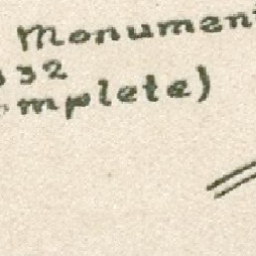 Monument
32
mplete)